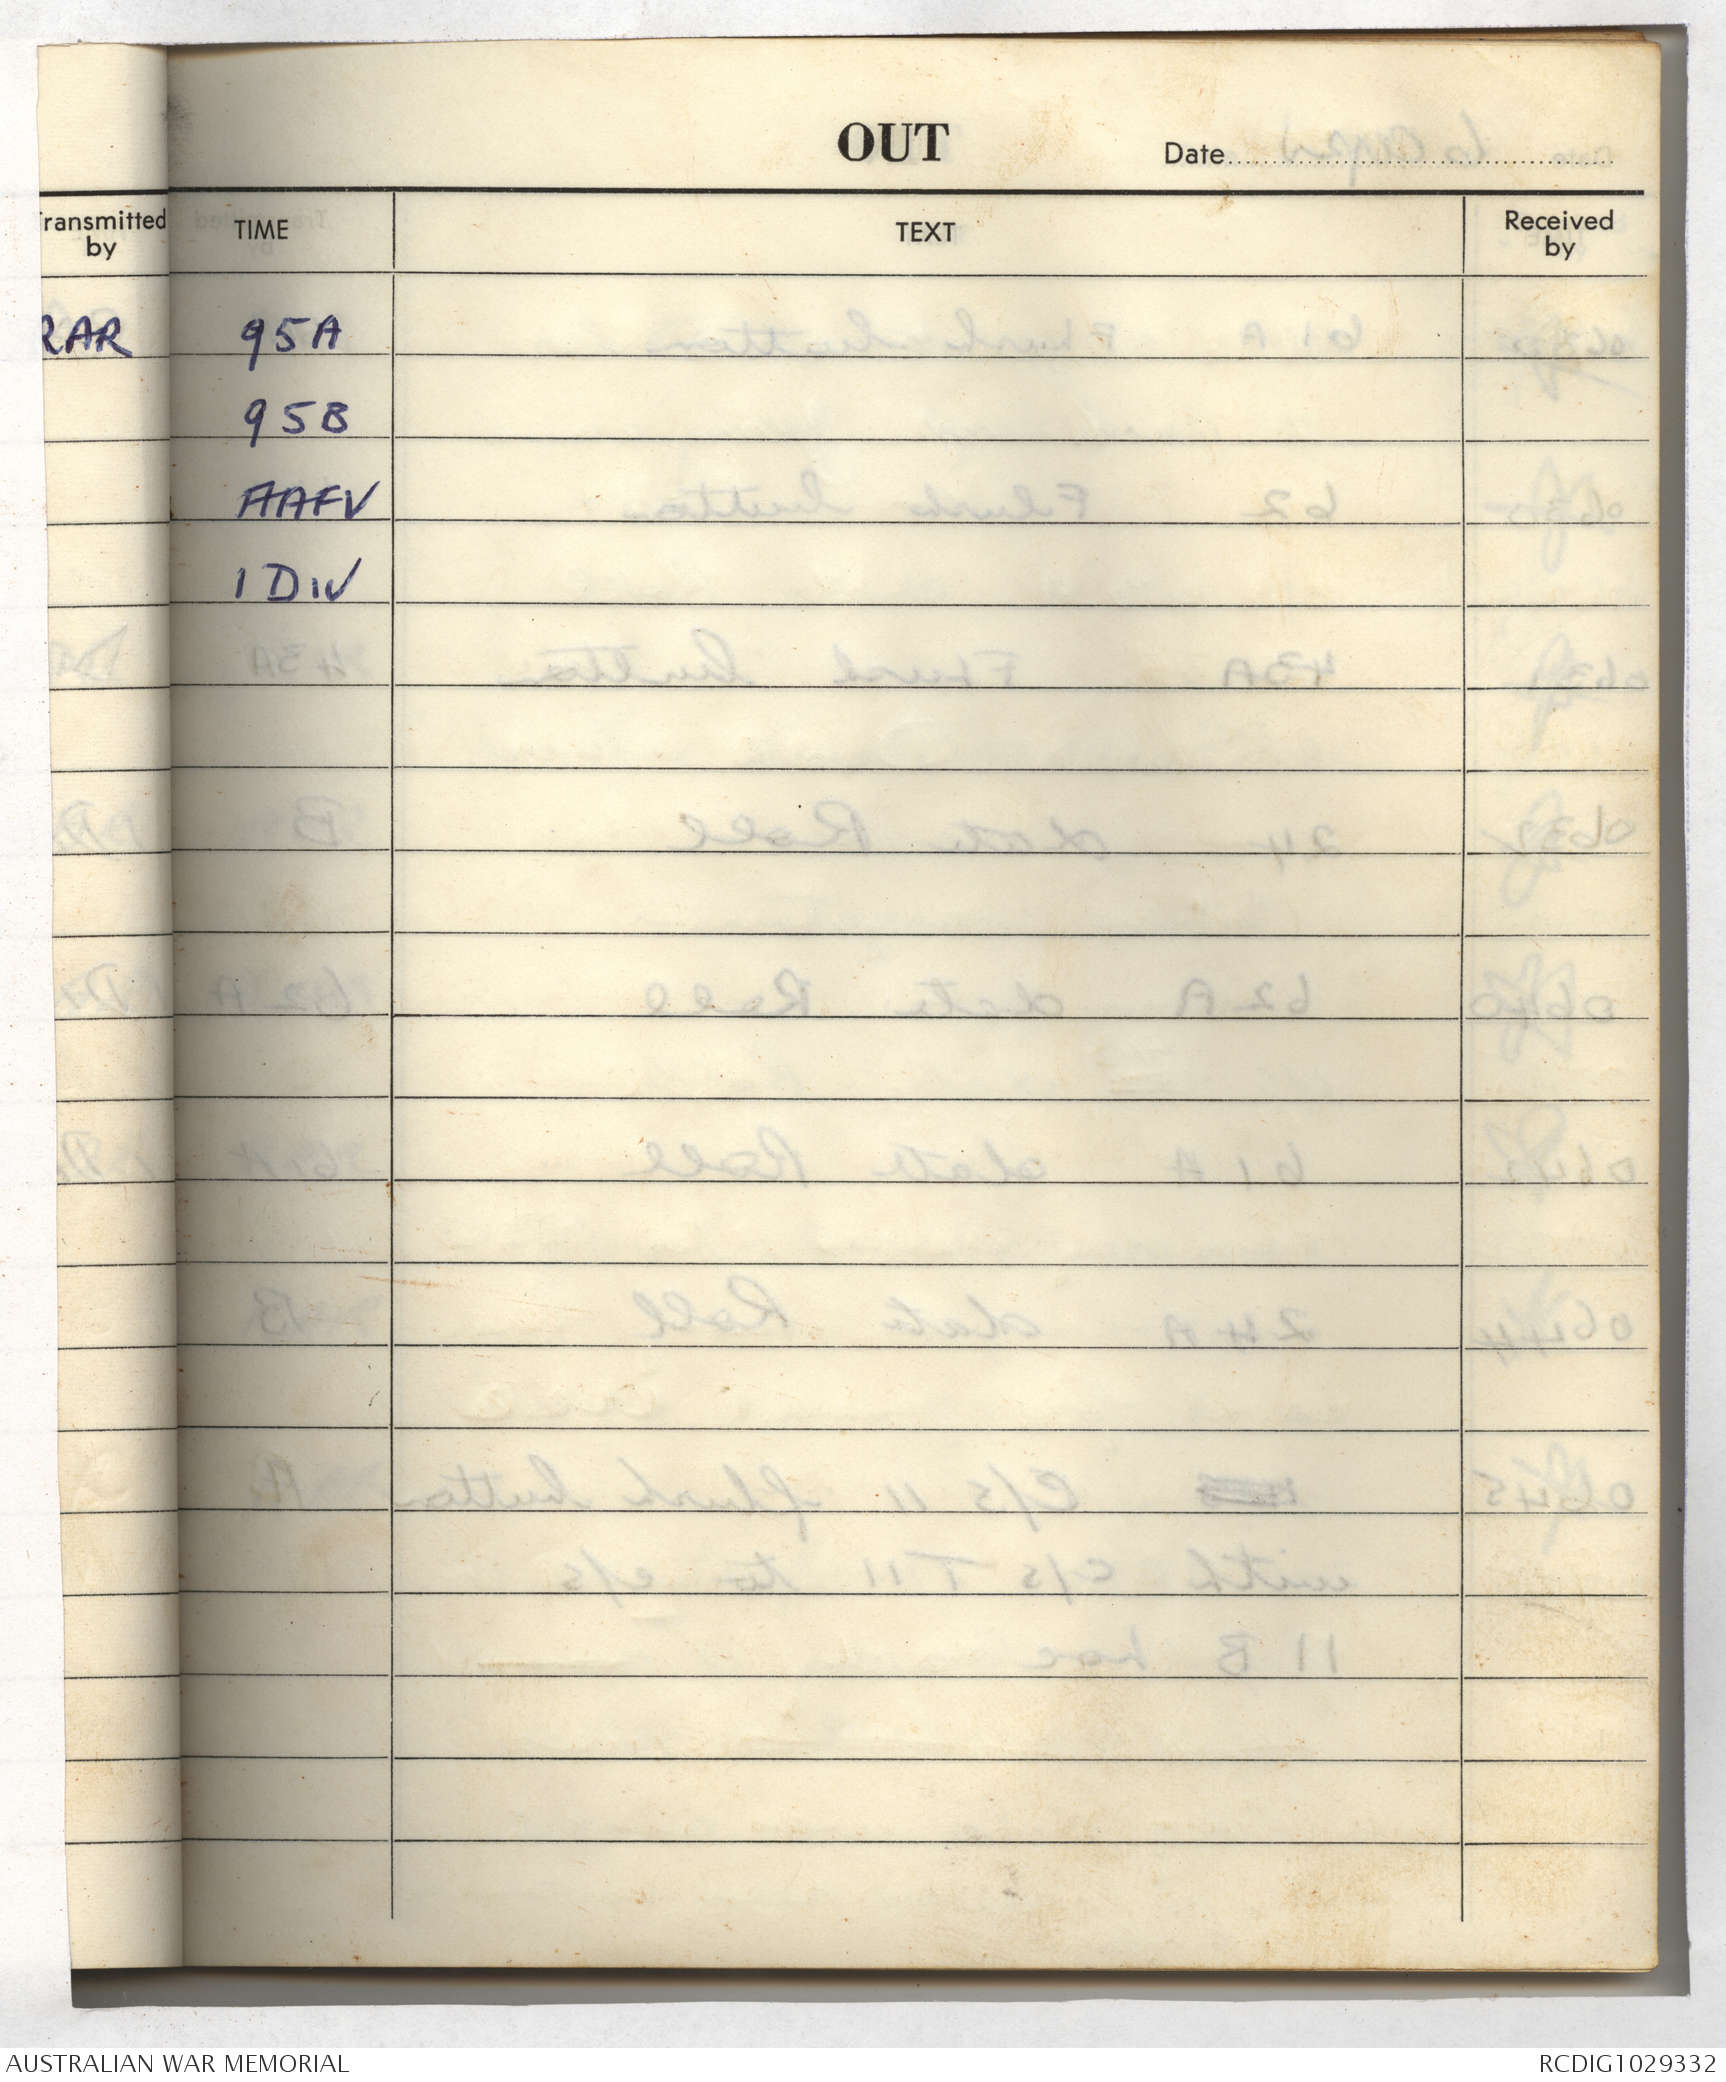 OUT
Date
Transmitted by
TIME
TEXT
Received by
RAR
95A
95B
AAFV
1 DIV
AUSTRALIAN WAR MEMORIAL
RCDIG1029332